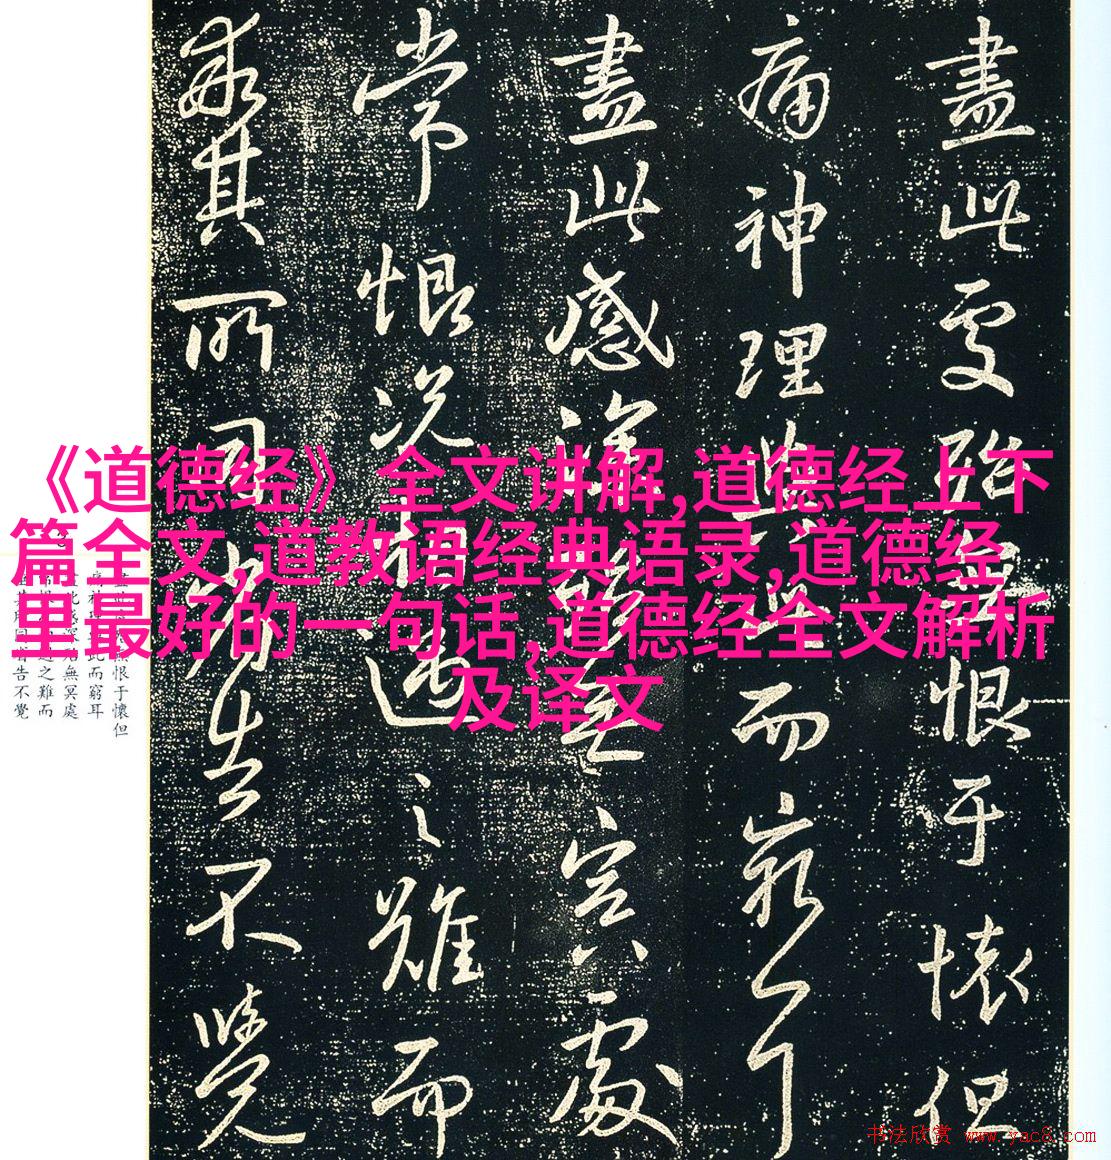 《道德经》全文讲解,道德经上下
篇全文,道教语经典语录,道德经
里最好的一句话,道德经全文解析
及译文
盡此處殆無恨于懷但
痛神理此而窮耳
盡此感深無冥處
常恨況相遇之難而
其所同告不覺
恨于懷但
此而窮耳
無冥處
之難而
告不覺
书法欣赏 www.yac8.com